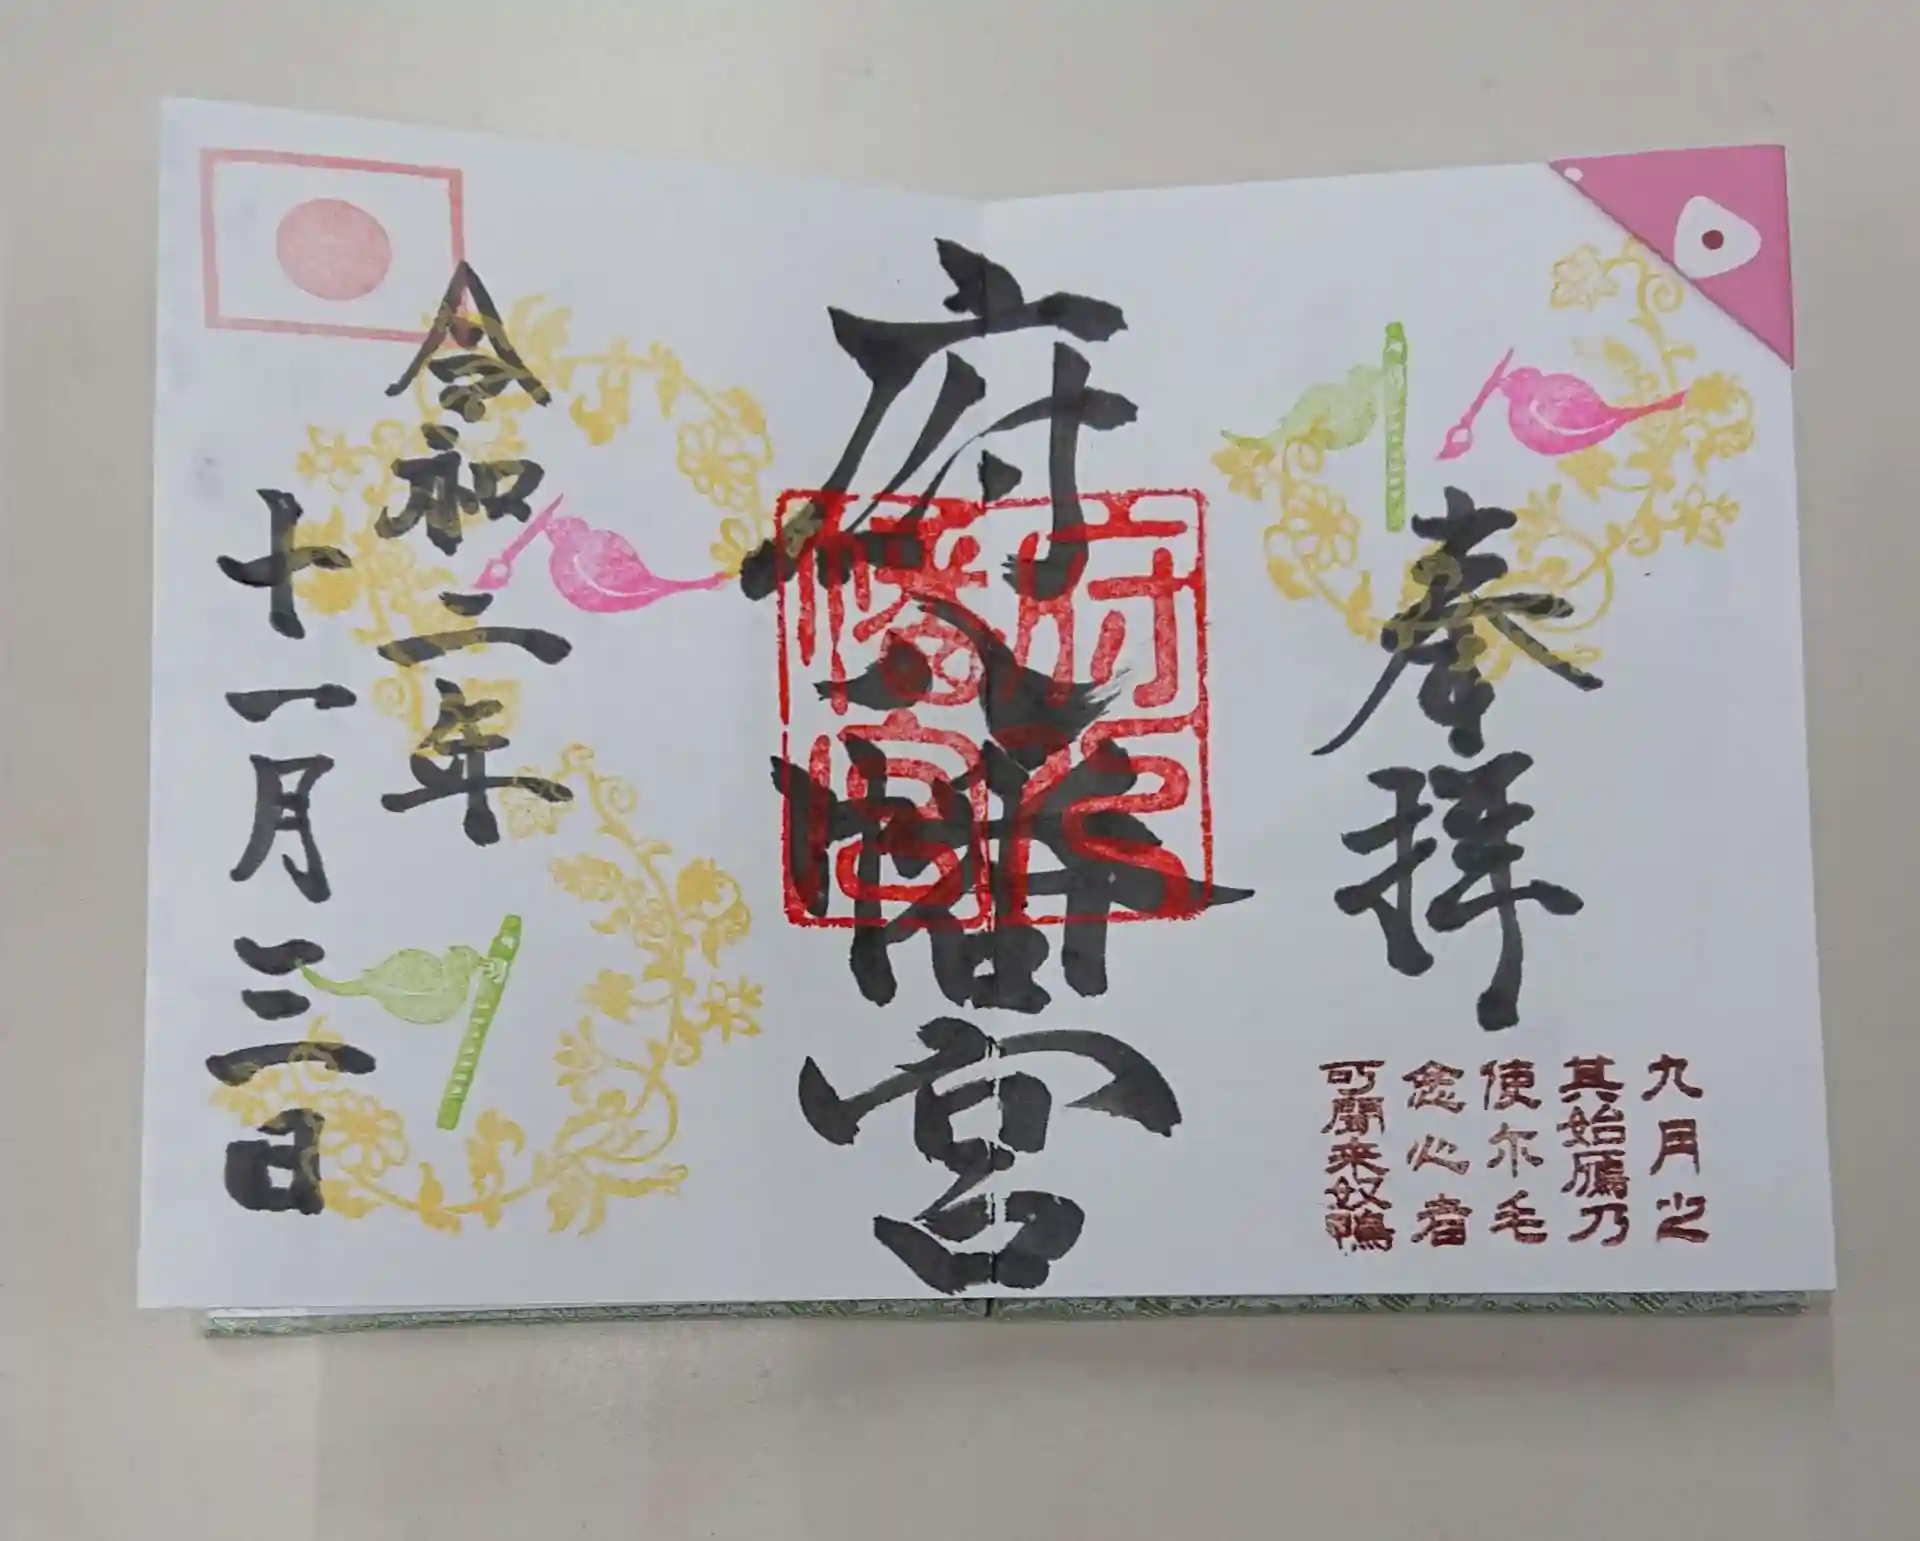 奉拝
九月之
其始鴈乃
使尓毛
念心者
可聞来奴鴨
府八幡宮
府八幡宮
令和二年
十一月三日